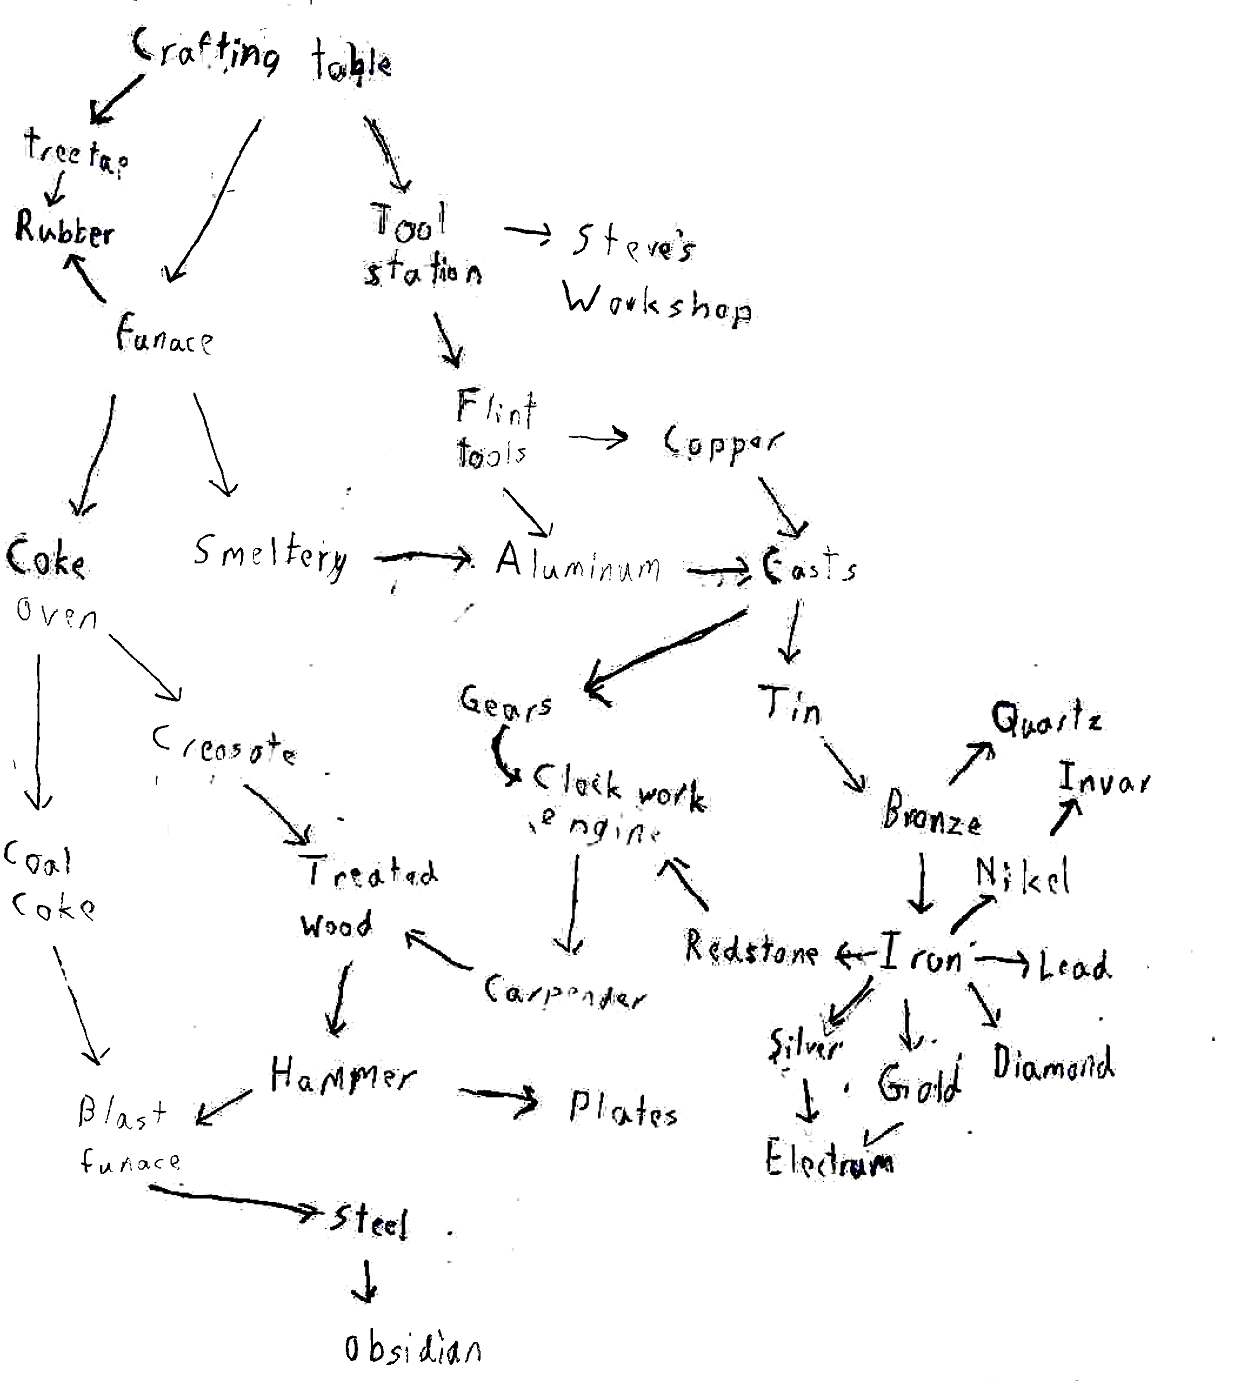 Crafting table
treetap
Rubber
Tool
station
Steve's
Workshop
funace
Flint
tools
Copper
Coke
oven
Smeltery
Aluminum
Casts
Gears
Tin
Quartz
Creosote
Clock work
engine
Invar
Bronze
Coal
coke
Treated
wood
Nikel
Redstone
Iron
Lead
Carpender
Silver
Gold
Diamond
Hammer
Plates
Blast
funace
Electrum
Steel
Obsidian